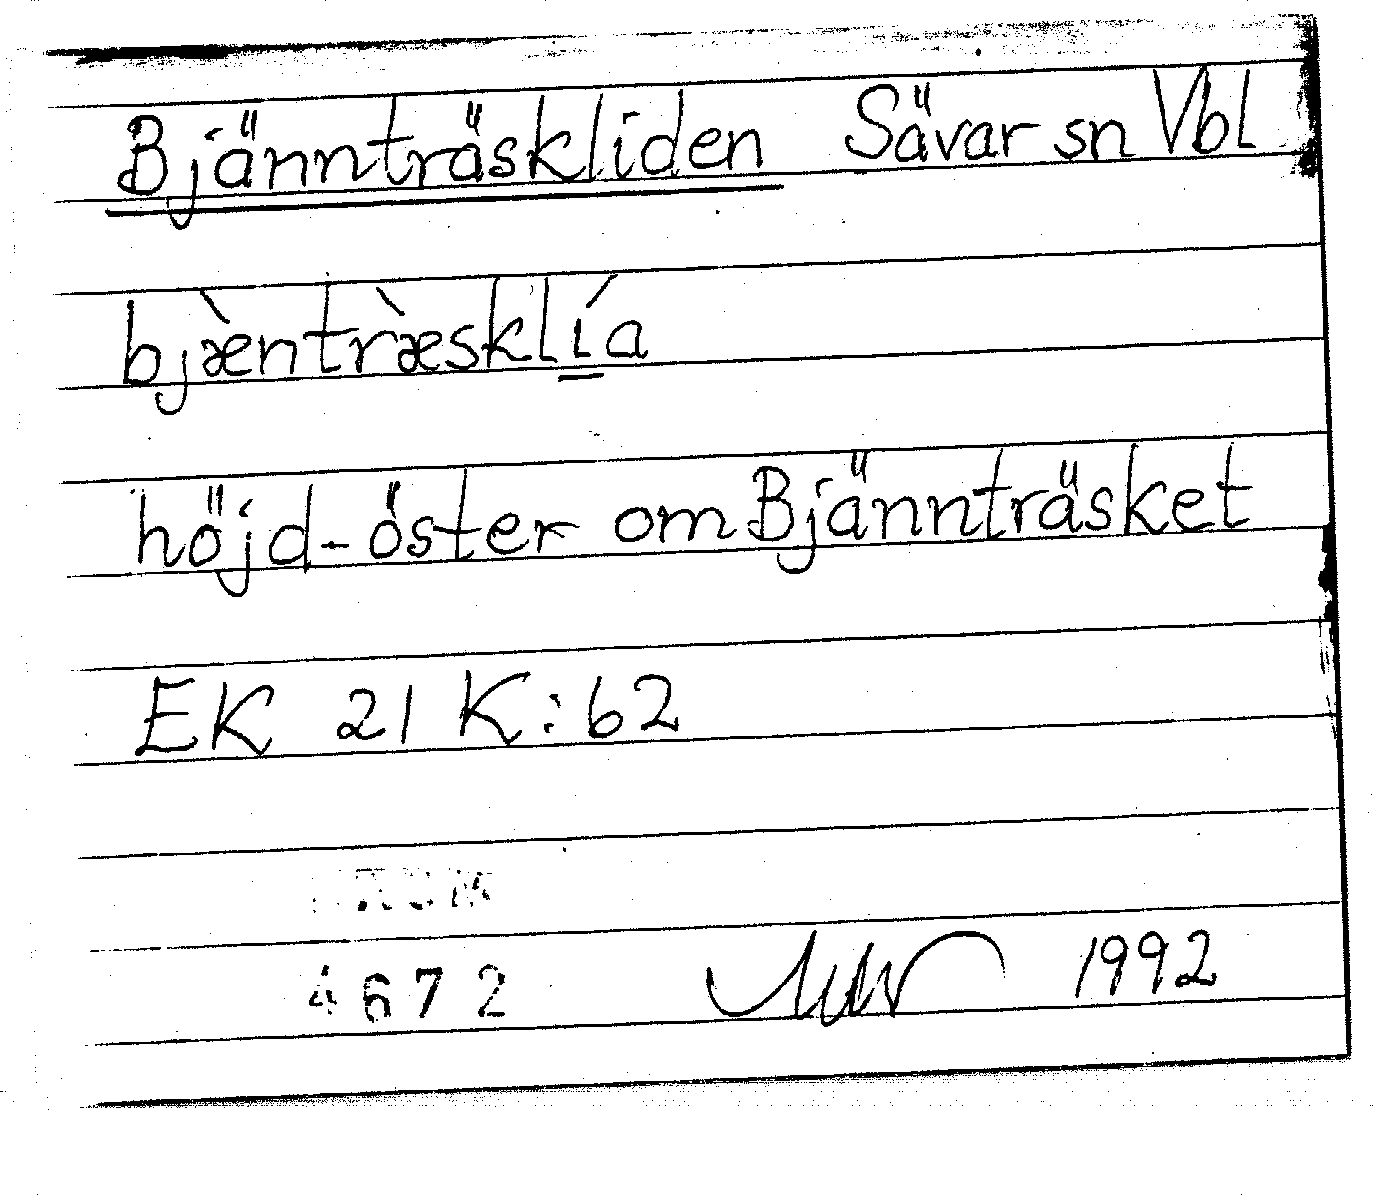 Bjännträskliden Sävar sn Vbl
bjæ̀nträ̀esklía
höjd - öster om Bjännträsket
EK 21 K:62
4672 1992